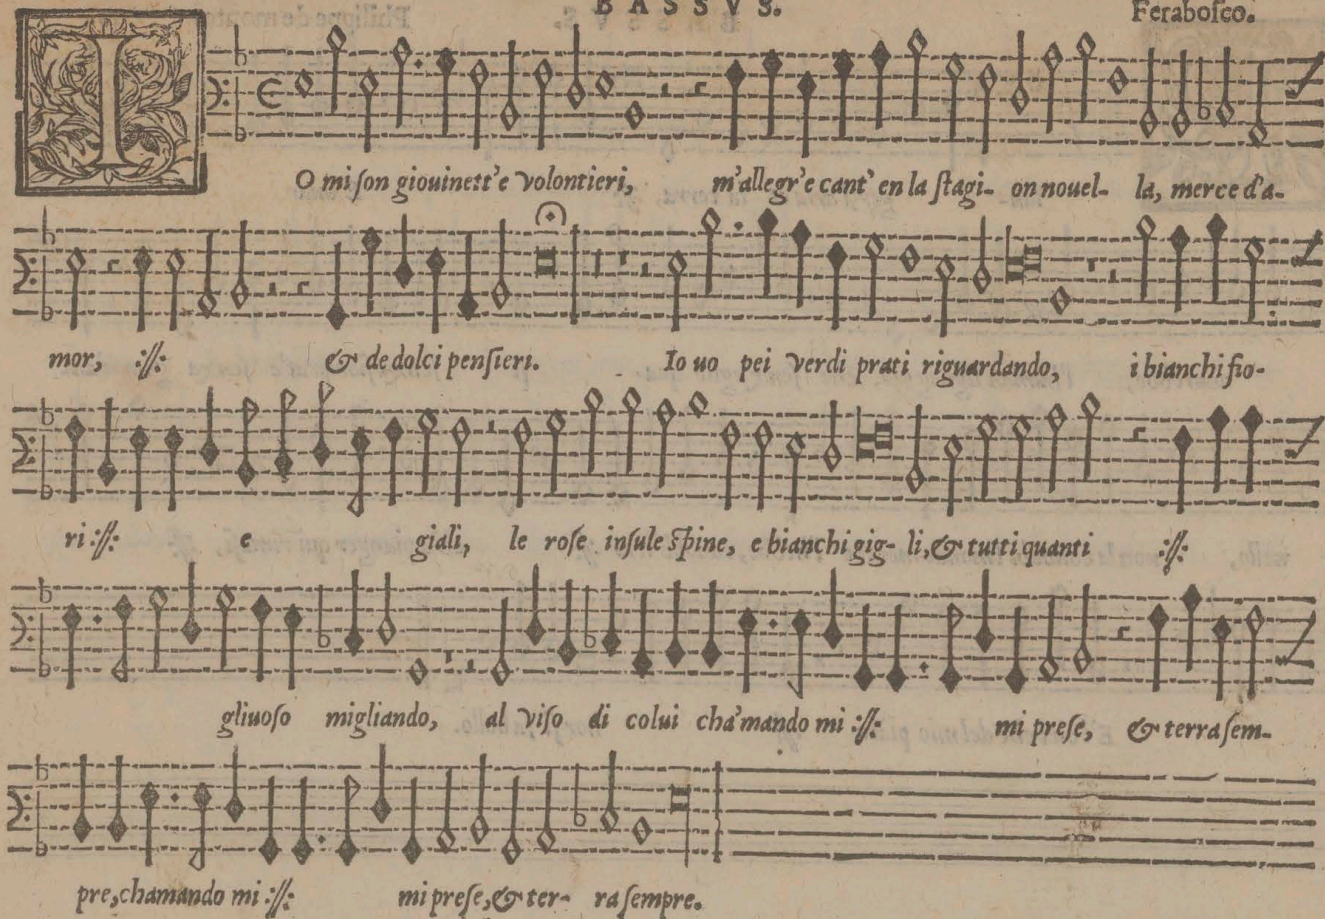 BASSVS. Feraboſco.
IO mi ſon giouinett'e volontieri, m'allegr'e cant' en la ſtagi- on nouel- la, merce d'a-
mor, :||: & de dolci penſieri. Io uo pei verdi prati riguardando, i bianchi fio-
ri :||: e giali, le roſe inſule ſpine, e bianchi gig- li, & tutti quanti :||:
gliuoſo migliando, al viſo di colui cha'mando mi :||: mi preſe, & terra ſem-
pre, chamando mi :||: mi preſe, & ter- ra ſempre.